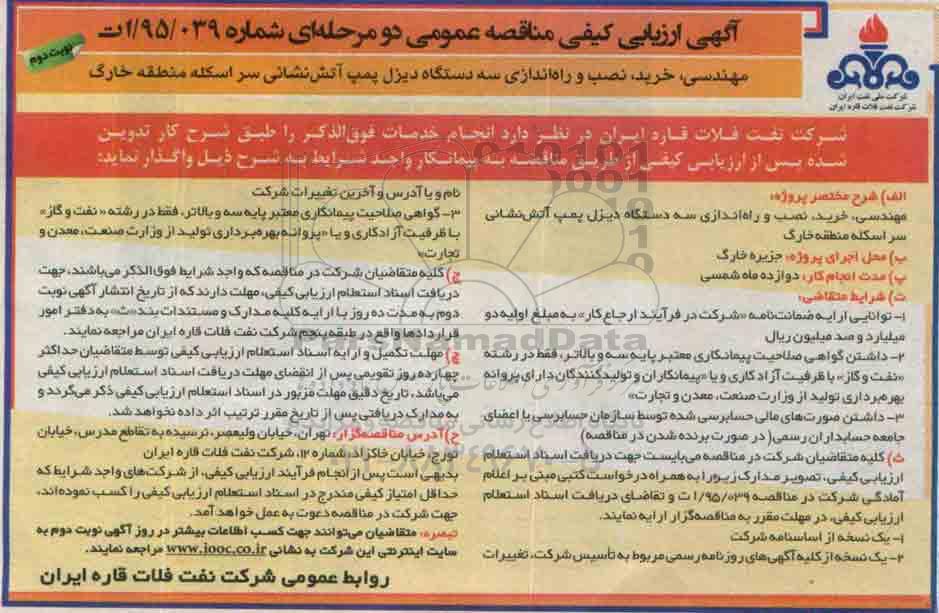 آگهی ارزیابی کیفی مناقصه عمومی دو مرحله‌ای شماره ۱/۹۵/۰۳۹ت
نوبت دوم
مهندسی، خرید، نصب و راه‌اندازی سه دستگاه دیزل پمپ آتش‌نشانی سر اسکله منطقه خارگ
شرکت ملی نفت ایران
شرکت نفت فلات قاره ایران
شرکت نفت فلات قاره ایران در نظر دارد انجام خدمات فوق‌الذکر را طبق شرح کار تدوین
شده پس از ارزیابی کیفی از طریق مناقصه به پیمانکار واجد شرایط به شرح ذیل واگذار نماید:
الف) شرح مختصر پروژه:
مهندسی، خرید، نصب و راه‌اندازی سه دستگاه دیزل پمپ آتش‌نشانی
سر اسکله منطقه خارگ
ب) محل اجرای پروژه: جزیره خارگ
پ) مدت انجام کار: دوازده ماه شمسی
ت) شرایط متقاضی:
۱- توانایی ارایه ضمانت‌نامه «شرکت در فرآیند ارجاع کار» به مبلغ اولیه دو
میلیارد و صد میلیون ریال
۲- داشتن گواهی صلاحیت پیمانکاری معتبر پایه سه و بالاتر، فقط در رشته
«نفت و گاز» با ظرفیت آزاد کاری و یا «پیمانکاران و تولیدکنندگان دارای پروانه
بهره‌برداری تولید از وزارت صنعت، معدن و تجارت»
۳- داشتن صورت‌های مالی حسابرسی شده توسط سازمان حسابرسی یا اعضای
جامعه حسابداران رسمی (در صورت برنده شدن در مناقصه)
ث) کلیه متقاضیان شرکت در مناقصه می‌بایست جهت دریافت اسناد استعلام
ارزیابی کیفی، تصویر مدارک زیر را به همراه درخواست کتبی مبنی بر اعلام
آمادگی شرکت در مناقصه ۱/۹۵/۰۳۹ت و تقاضای دریافت اسناد استعلام
ارزیابی کیفی، در مهلت مقرر به مناقصه‌گزار ارایه نمایند.
۱- یک نسخه از اساسنامه شرکت
۲- یک نسخه از کلیه آگهی‌های روزنامه رسمی مربوط به تأسیس شرکت، تغییرات
نام و یا آدرس و آخرین تغییرات شرکت
۳- گواهی صلاحیت پیمانکاری معتبر پایه سه و بالاتر، فقط در رشته «نفت و گاز»
با ظرفیت آزاد کاری و یا «پروانه بهره‌برداری تولید از وزارت صنعت، معدن و
تجارت»
ج) کلیه متقاضیان شرکت در مناقصه که واجد شرایط فوق‌الذکر می‌باشند، جهت
دریافت اسناد استعلام ارزیابی کیفی، مهلت دارند که از تاریخ انتشار آگهی نوبت
دوم به مدت ده روز با ارایه کلیه مدارک و مستندات بند «ث» به دفتر امور
قراردادها واقع در طبقه پنجم شرکت نفت فلات قاره ایران مراجعه نمایند.
چ) مهلت تکمیل و ارایه اسناد استعلام ارزیابی کیفی توسط متقاضیان حداکثر
چهارده روز تقویمی پس از انقضای مهلت دریافت اسناد استعلام ارزیابی کیفی
می‌باشد، تاریخ دقیق مهلت مزبور در اسناد استعلام ارزیابی کیفی ذکر می‌گردد و
به مدارک دریافتی پس از تاریخ مقرر ترتیب اثر داده نخواهد شد.
ح) آدرس مناقصه‌گزار: تهران، خیابان ولیعصر، نرسیده به تقاطع مدرس، خیابان
تورج، خیابان خاکزاد، شماره ۱۲، شرکت نفت فلات قاره ایران
بدیهی است پس از انجام فرآیند ارزیابی کیفی، از شرکت‌های واجد شرایط که
حداقل امتیاز کیفی مندرج در اسناد استعلام ارزیابی کیفی را کسب نموده‌اند،
جهت شرکت در مناقصه دعوت به عمل خواهد آمد.
تبصره: متقاضیان می‌توانند جهت کسب اطلاعات بیشتر در روز آگهی نوبت دوم به
سایت اینترنتی این شرکت به نشانی www.iooc.co.ir مراجعه نمایند.
روابط عمومی شرکت نفت فلات قاره ایران
ParsNamadData